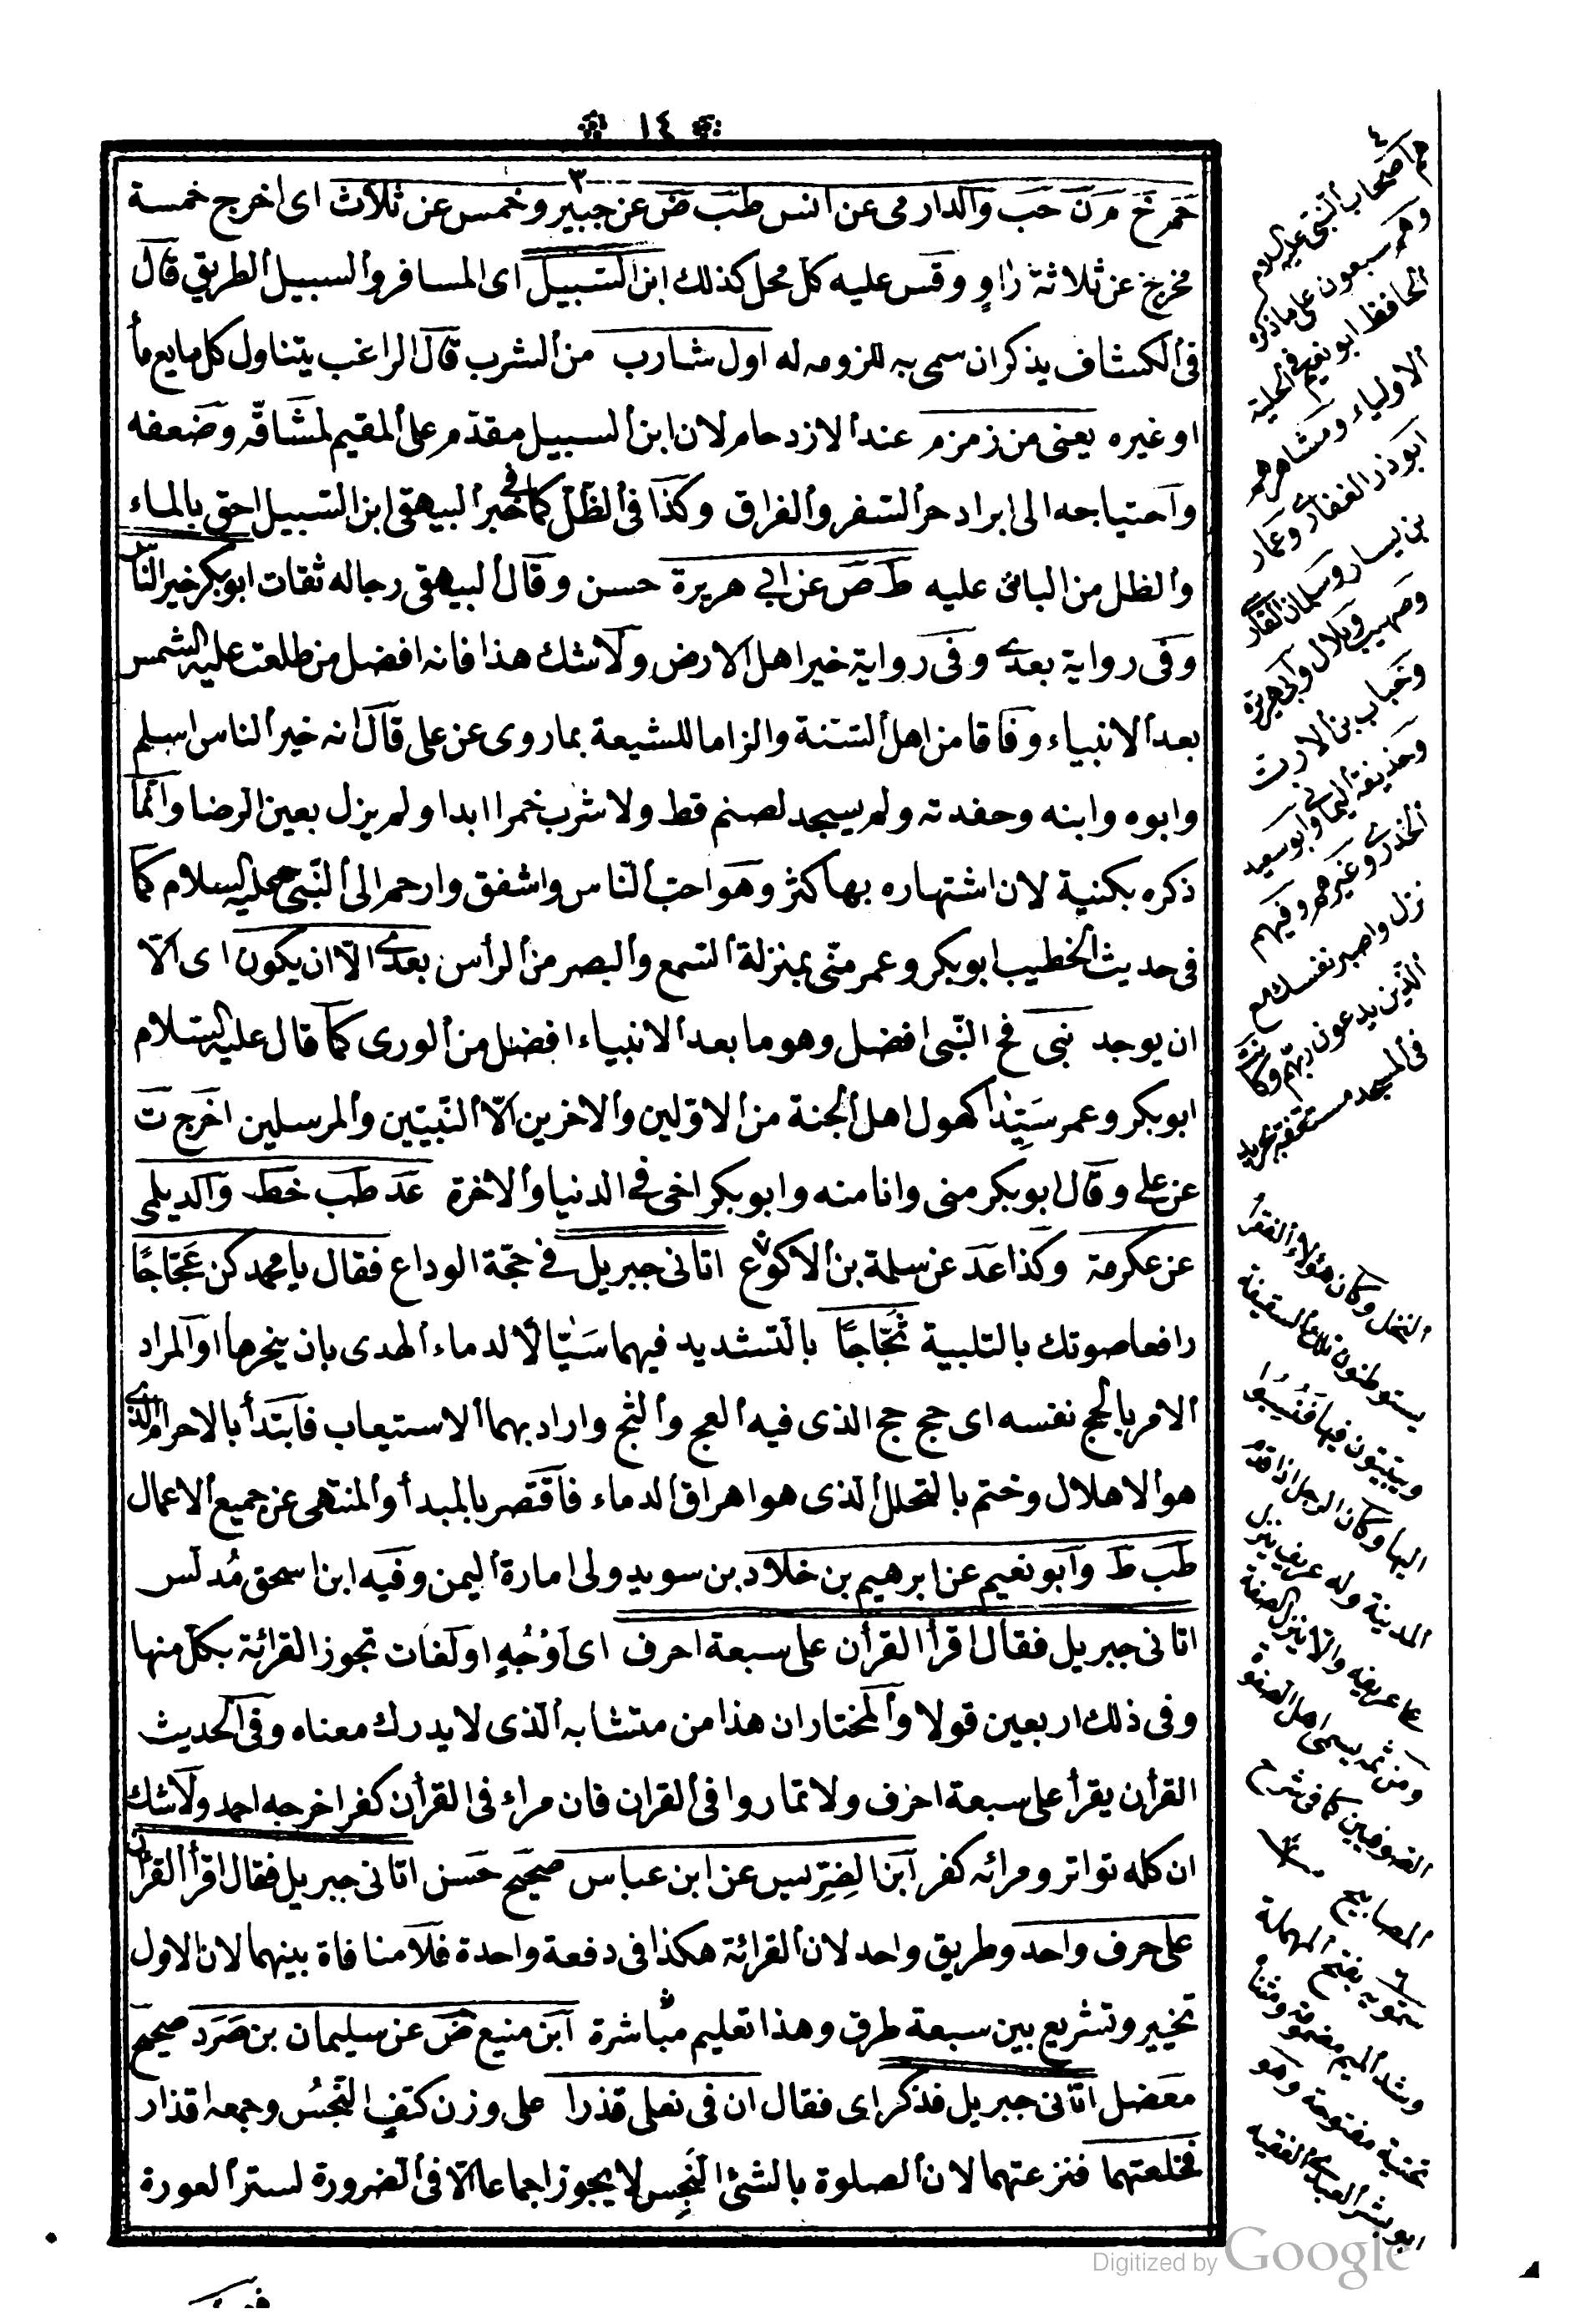 ١٤
حم خ م ر ن حب والدارمى عن انس طب ض عن جبير وخمس عن ثلاث اى اخرج خمسة
مخرج عن ثلاثة راو وقس عليه كل محل كذلك ابن السبيل اى المسافر والسبيل الطريق قال
فى الكشاف يذكر ان سمى به للزومه له اول شارب من الشرب قال الراغب يتناول كل مايع مأ
او غيره يعنى من زمزم عند الازدحام لان ابن السبيل مقدم على المقيم لمشاقه وضعفه
واحتياجه الى ابراد حر السفر والفراق وكذا فى الظل كما فى خبر البيهقى ابن السبيل احق بالماء
والظل من البانى عليه ط ص عن ابى هريرة حسن وقال البيهقى رجاله ثقات ابو بكر خير الناس
وفى رواية بعدى وفى رواية خير اهل الارض ولا شك هذا فانه افضل من طلعت عليه الشمس
بعد الانبياء وفاقا من اهل السنة والزاما للشيعة بما روى عن على قال انه خير الناس اسلم
وابوه وابنه وحفدته ولم يسجد لصنم قط ولا شرب خمرا ابدا ولم يزل بعين الرضا وانما
ذكره بكنية لان اشتهاره بها كثر وهو احب الناس واشفق وارحم الى النبى عليه السلام كما
فى حديث الخطيب ابو بكر وعمر منى بمنزلة السمع والبصر من الرأس بعدى الا ان يكون اى الا
ان يوجد نبى فح النبى افضل وهو ما بعد الانبياء افضل من الورى كما قال عليه السلام
ابو بكر وعمر سَيِّدا كهول اهل الجنة من الاولين والاخرين الا النبيين والمرسلين اخرج ت
عن على وقال ابو بكر منى وانا منه وابو بكر اخى فى الدنيا والاخرة عد طب خط والديلمى
عن عكرمة وكذا عد عن سلمة بن الاكوع اتانى جبريل فى حجة الوداع فقال يا محمد كن عَجّاجًا
رافعا صوتك بالتلبية ثَجّاجًا بالتشديد فيهما سَيّالًا لدماء الهدى بان ينحرها او المراد
الامر بالحج نفسه اى حج حج الذى فيه العج والثج واراد بهما الاستيعاب فابتدأ بالاحرام الذى
هو الاهلال وختم بالتحلل الذى هو اهراق الدماء فاقتصر بالمبدأ والمنتهى عن جميع الاعمال
طب ط وابو نعيم عن ابرهيم بن خلاد بن سويد ولى امارة اليمن وفيه ابن اسحق مُدلس
اتانى جبريل فقال اقرأ القرأن على سبعة احرف اى اَوْجُهٍ او لغات تجوز القرائة بكل منها
وفى ذلك اربعين قولا والمختار ان هذا من متشابه الذى لا يدرك معناه وفى الحديث
القرأن يقرأ على سبعة احرف ولا تماروا فى القران فان مراء فى القرأن كفر اخرجه احمد ولا شك
ان كله تواتر ومرائه كفر ابن الضِرِّيس عن ابن عباس صحيح حسن اتانى جبريل فقال اقرأ القرأن
على حرف واحد وطريق واحد لان القرائة هكذا فى دفعة واحدة فلا منافاة بينهما لان الاول
تخيير وتشريع بين سبعة طرق وهذا تعليم مباشرة ابن منيع ض عن سليمان بن صَرَد صحيح
معضل اتانى جبريل فذكر اى فقال ان فى نعلى قذرا على وزن كتفٍ النجسُ وجمعه اقذار
فخلعتهما فنزعتهما لان الصلوة بالشئ النجِس لا يجوز اجماعا الا فى الضرورة لستر العورة
٤
هم اصحاب النبى عليه السلام
وهم سبعون على ما ذكره
الحافظ ابو نعيم فى الحلية
الاولياء ومشاهرهم
ابو ذر الغفارى وعمار
بن يسار وسلمان الفارسى
وصهيب وبلال وابى هريرة
وخباب بن الارت
وحذيفة اليمانى وابو سعيد
الخدرى وغيرهم وفيهم
نزل واصبر نفسك مع
الذين يدعون ربهم وكانت
فى المسجد مسقفة بجريد
النخل وكان هؤلاء الفقراء
يستوطنون تلك السقيفة
ويبيتون فيها فنسبوا
اليها وكان الرجل اذا قدم
المدينة وله عريف ينزل
على عريفه والا ينزل الصفة
ومن ثم يسمى اهل الصفة
الصوفيين كما فى شرح
المصابيح
٦
سمويه بفتح المهملة
وشد الميم مضمومة ومثناة
تحتية مفتوحة وهو
ابو بشر العبدى الفقيه
Digitized by Google